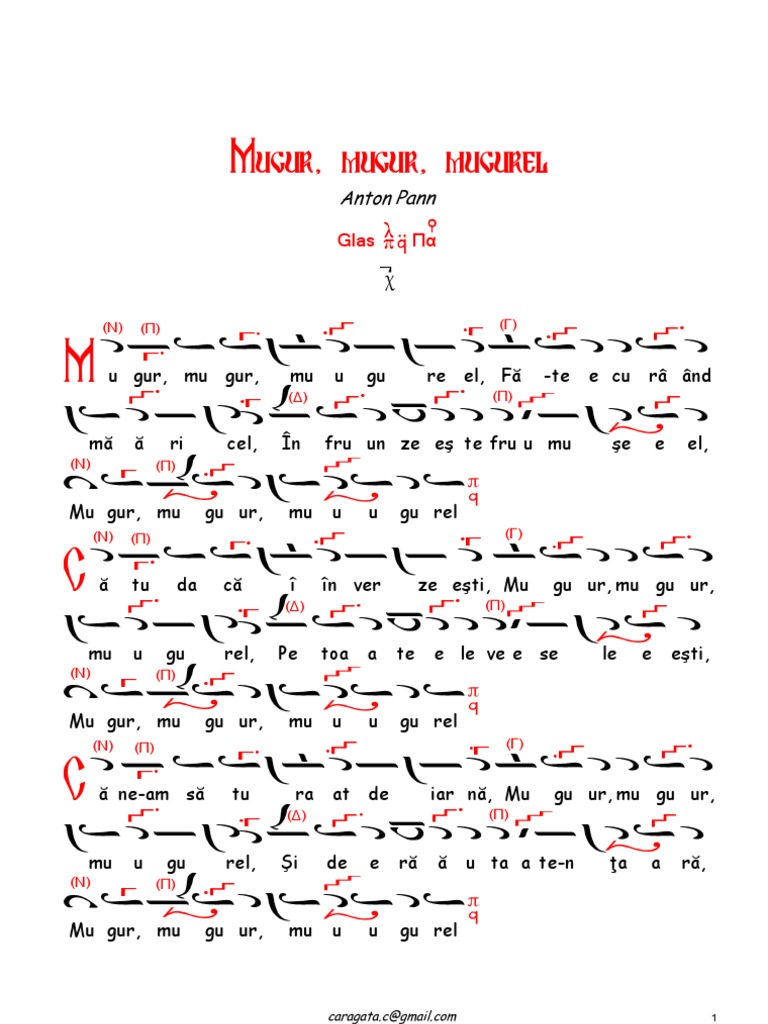 Mugur, mugur, mugurel
Anton Pann
Glas λ π q̈ Πα
χ
(Ν) (Π) (Γ)
Mu gur, mu gur, mu u gu re el, Fă -te e cu râ ând
(Δ) (Π)
mă ă ri cel, În fru un ze eş te fru u mu şe e el,
(Ν) (Π) π q
Mu gur, mu gu ur, mu u u gu rel
(Ν) (Π) (Γ)
Că tu da că î în ver ze eşti, Mu gu ur, mu gu ur,
(Δ) (Π)
mu u gu rel, Pe toa a te e le ve e se le e eşti,
(Ν) (Π) π q
Mu gur, mu gu ur, mu u u gu rel
(Ν) (Π) (Γ)
Că ne-am să tu ra at de iar nă, Mu gu ur, mu gu ur,
(Δ) (Π)
mu u gu rel, Şi de e ră ă u ta a te-n ţa a ră,
(Ν) (Π) π q
Mu gur, mu gu ur, mu u u gu rel
caragata.c@gmail.com 1